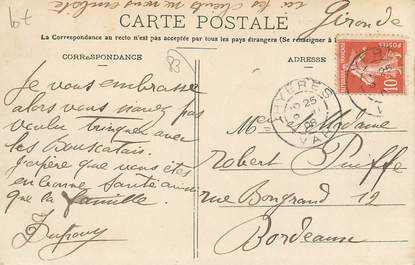 Gironde
CARTE POSTALE
La Correspondance au recto n'est pas acceptée par tous les pays étrangers (Se renseigner à
CORRESPONDANCE
ADRESSE
83
Je vous embrasse
alors vous n'avez pas
voulu trinquer avec
les Bouscatais.
J'espère que vous êtes
en bonne Santé ainsi
que la famille
Dupouy
HYERES
25
VAR
10
Madame
Robert Peiffe
rue Bongrand 12
Bordeaux